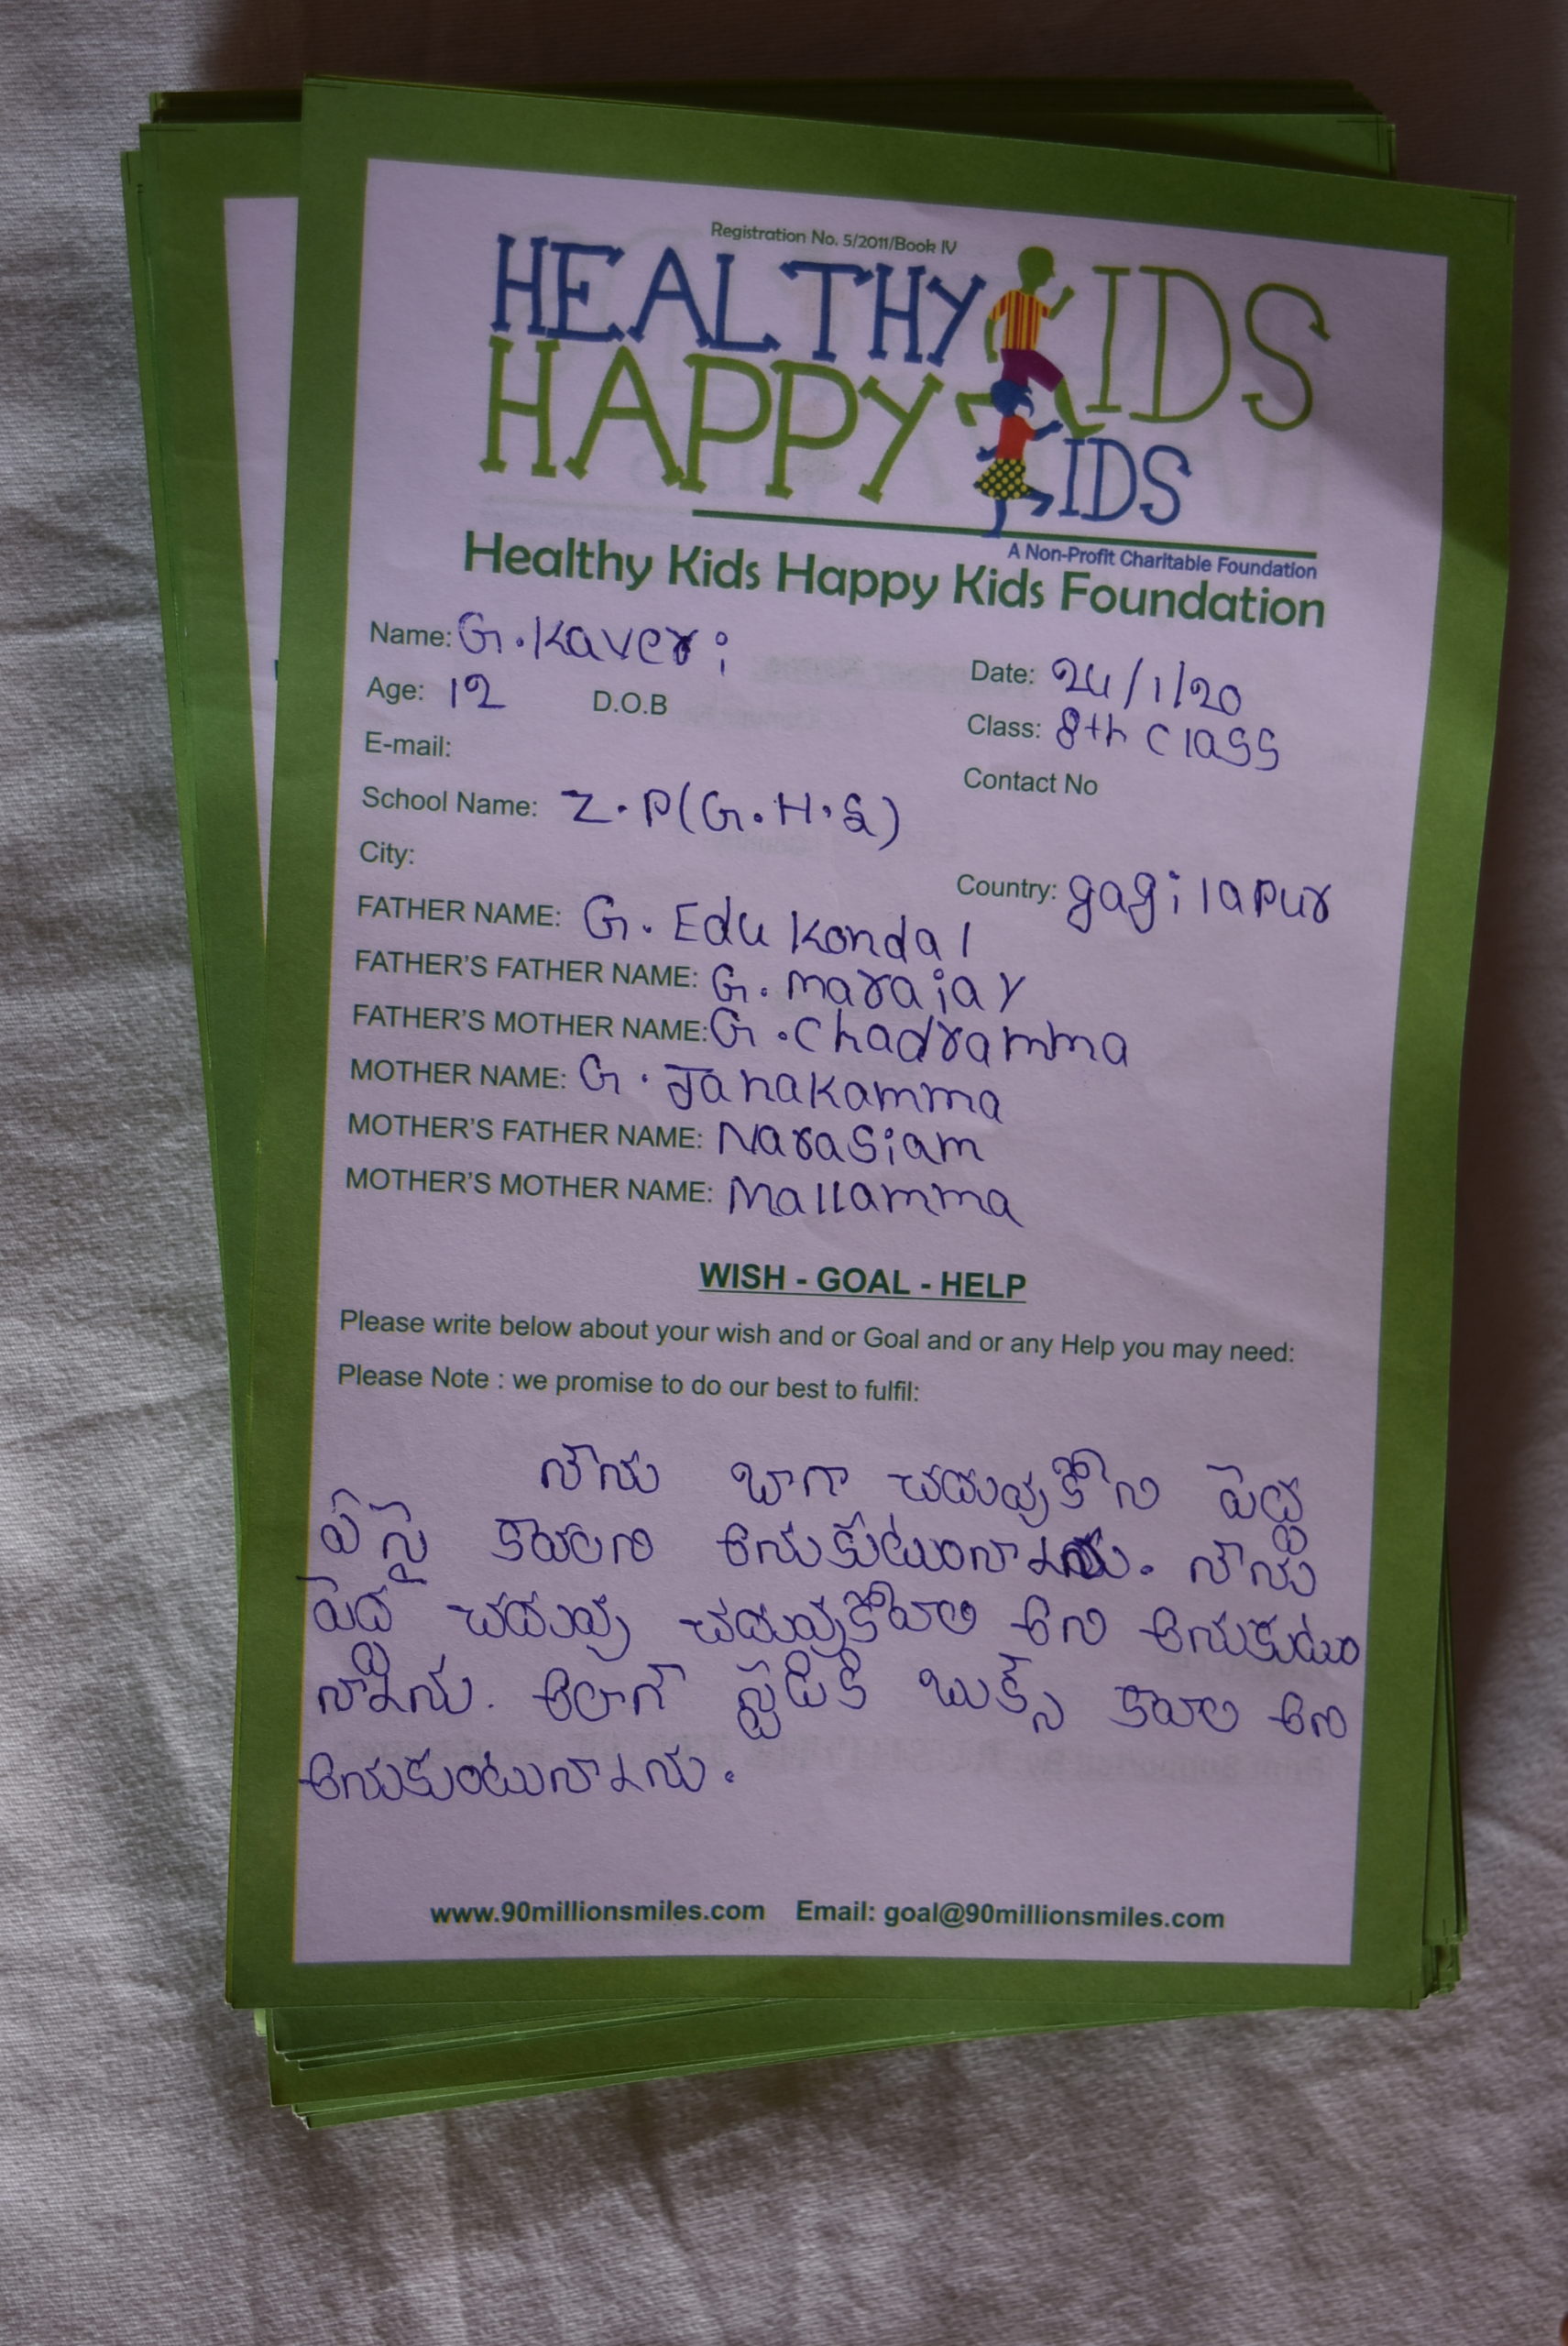 Registration No. 5/2011/Book IV
HEALTHY KIDS
HAPPY KIDS
A Non-Profit Charitable Foundation
Healthy Kids Happy Kids Foundation
Name: G.Kaveri
Date: 24/1/20
Age: 12 D.O.B
Class: 8th class
E-mail:
Contact No
School Name: Z.P(G.H.S)
City:
Country: gagilapur
FATHER NAME: G. Edu Kondal
FATHER'S FATHER NAME: G. maraiay
FATHER'S MOTHER NAME: G.chadramma
MOTHER NAME: G. Janakamma
MOTHER'S FATHER NAME: Narasiam
MOTHER'S MOTHER NAME: Mallamma
WISH - GOAL - HELP
Please write below about your wish and or Goal and or any Help you may need:
Please Note : we promise to do our best to fulfil:
నేను బాగా చదువుకోని పెద్ద
పిసై కావాలని అనుకుటుంనాను. నేను
పెద్ద చదువు చదువుకోవాలి అని అనుకుటుం
నాను. అలాగే స్టడికి బుక్స్ కావాలి అని
అనుకుంటునాను.
www.90millionsmiles.com Email: goal@90millionsmiles.com